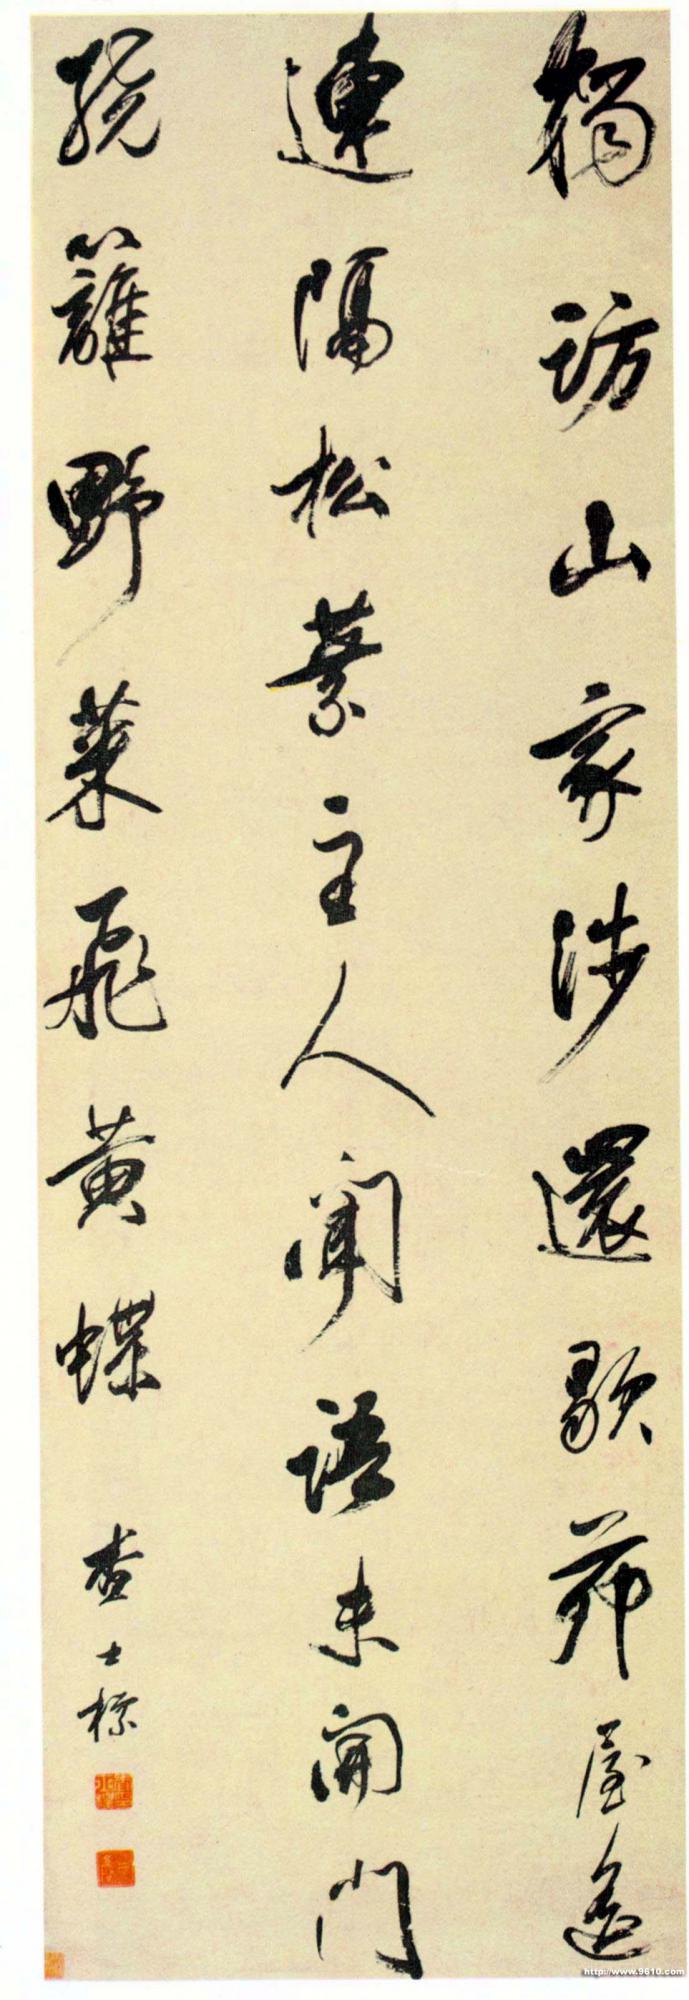 獨訪山家涉還歇茆屋遙
連隔松葉主人聞語未開門
繞籬野菜飛黃蝶
查士標
http://www.9610.com